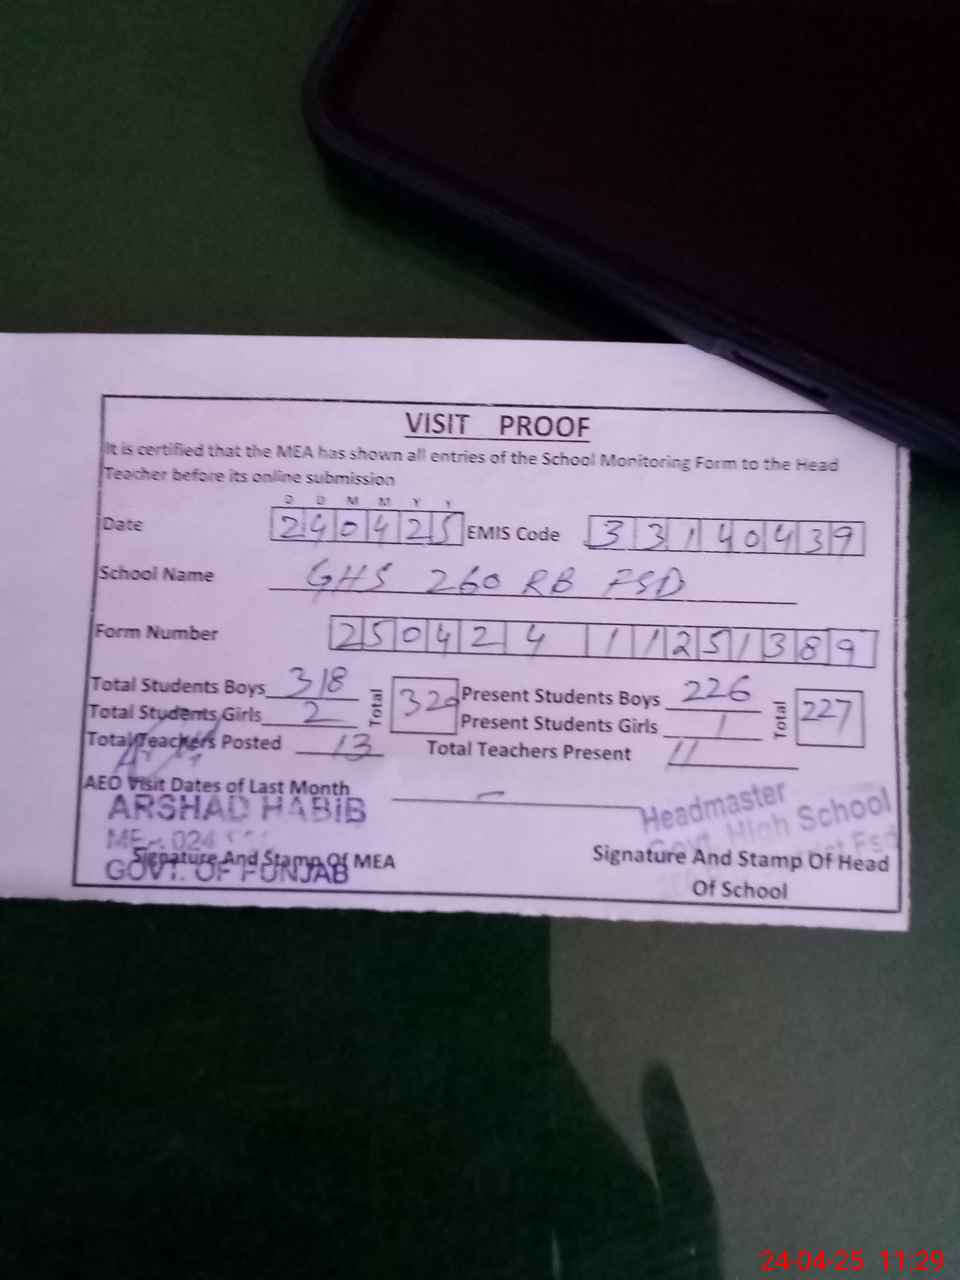 VISIT PROOF
It is certified that the MEA has shown all entries of the School Monitoring Form to the Head
Teacher before its online submission
D D M M Y Y
Date 240425 EMIS Code 33140439
School Name GHS 260 RB FSD
Form Number 25042411251389
Total Students Boys 318 Total 320 Present Students Boys 226 Total 227
Total Students Girls 2 Present Students Girls 1
Total Teachers Posted 13 Total Teachers Present 11
AEO Visit Dates of Last Month -
ARSHAD HABIB
024
GOVT. OF PUNJAB
Signature And Stamp Of MEA
Headmaster
Govt. High School
Fsd
Signature And Stamp Of Head
Of School
24-04-25 11:29